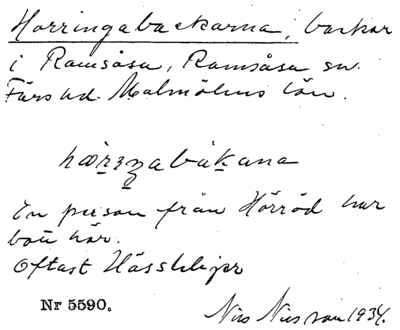 Horringabackarna, backar
i Ramsåsa, Ramsåsa sn.
Färs hd. Malmöhus län.
En person från Hörröd har
bott här.
Oftast
Nr 5590.
Nils Nilsson 1934.